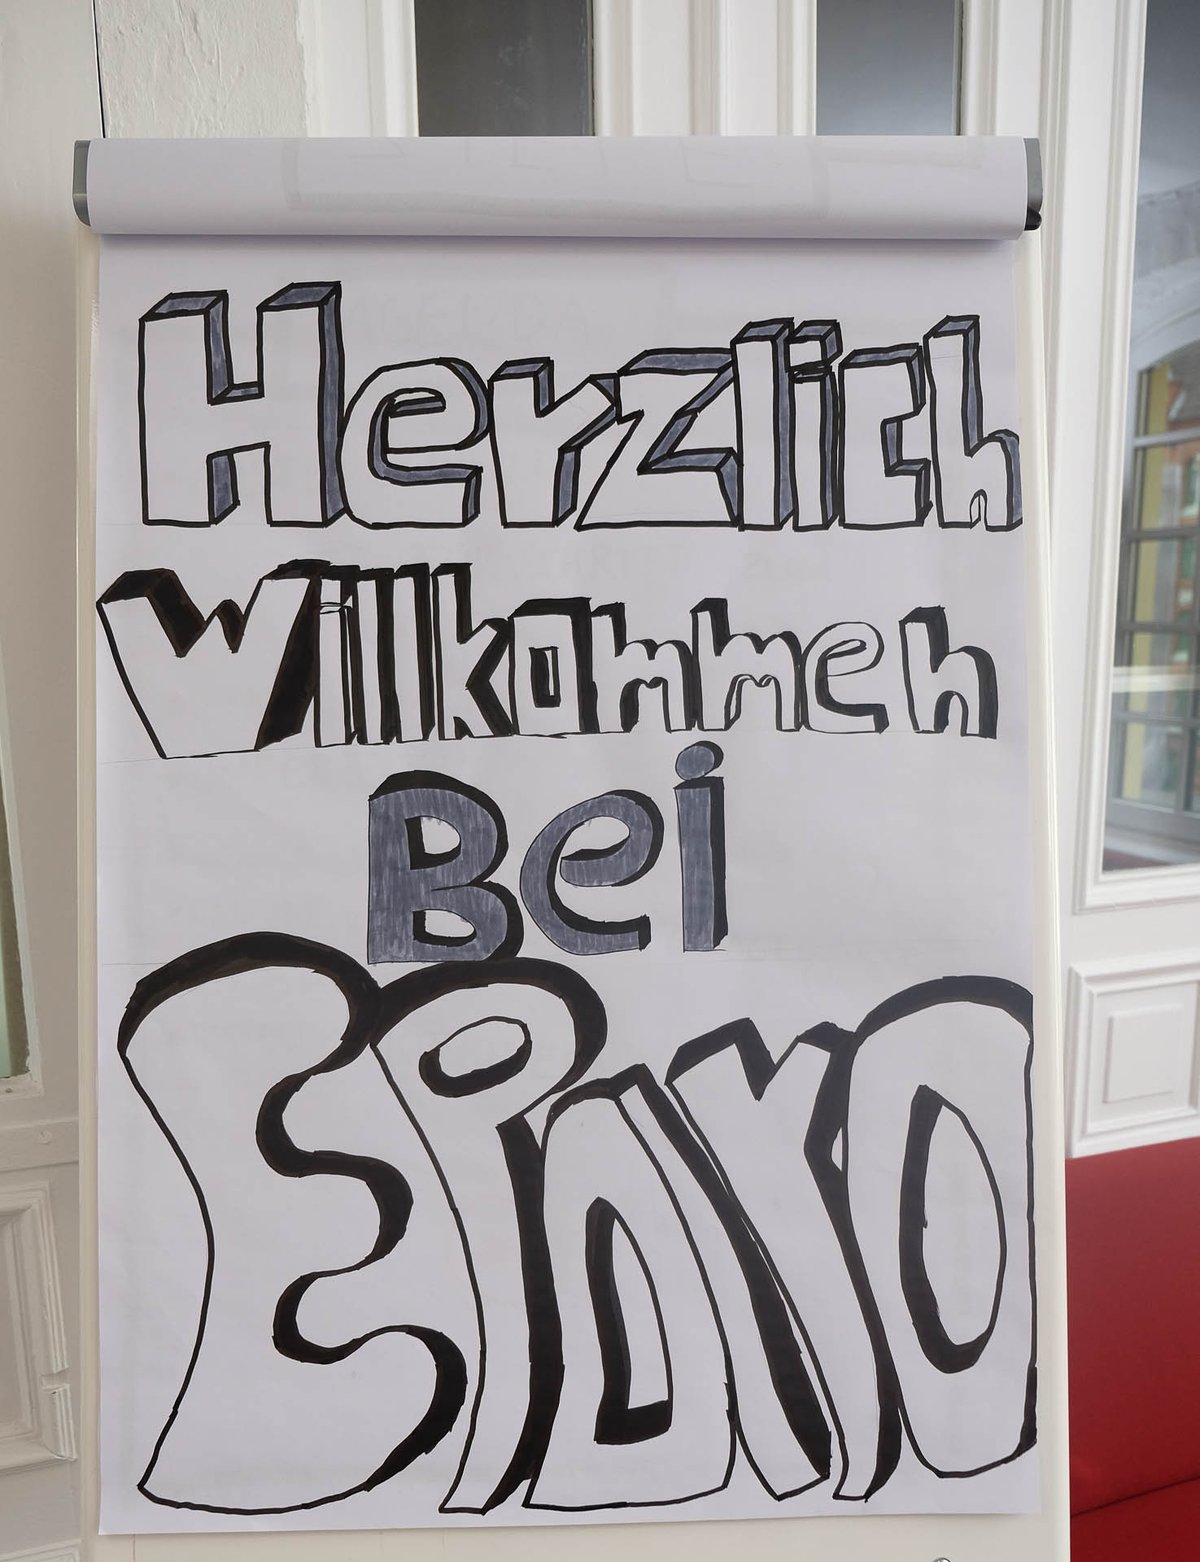 Herzlich
Willkommen
Bei
Eparo